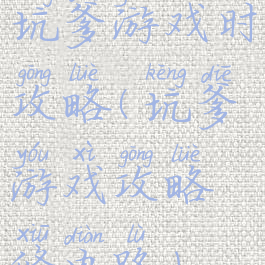 坑爹游戏时
gōng lüè kēng diē
攻略(坑爹
yóu xì gōng lüè
游戏攻略
xiū diàn lù
修电路)